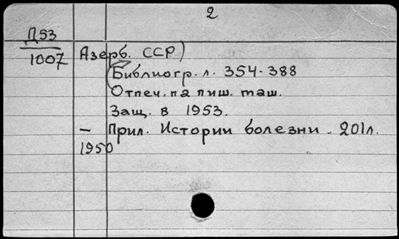 2
Д53
1007
Азерб. ССР)
(Библиогр. л. 354-388
Отпеч. на пиш. маш.
Защ. в 1953.
– Прил. Истории болезни. 201л.
1950